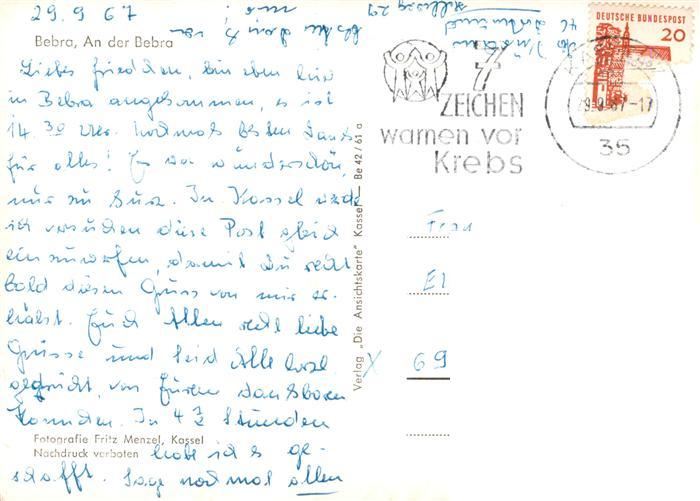 29.9.67
Bebra, An der Bebra
Liebes Friedchen, bin eben hier
in Bebra angekommen, es ist
14.30 Uhr. Nochmals besten Dank
für alles! Es war wunderschön,
nur zu kurz. In Kassel werde
ich versuchen diese Post gleich
einzuwerfen, damit Du recht
bald diesen Gruss von mir er-
hälst. Euch Allen recht liebe
Grüsse und seid Alle herzl
gedrückt, von Eurem dankbaren
In 4 1/2 Stunden
Fotografie Fritz Menzel, Kassel
Nachdruck verboten
habe ich es ge-
schafft. Sage nochmal allen
besten Dank
Verlag „Die Ansichtskarte" Kassel — Be 42/61 a
7
ZEICHEN
warnen vor
Krebs
DEUTSCHE BUNDESPOST
20
35
Frau
El
X 69